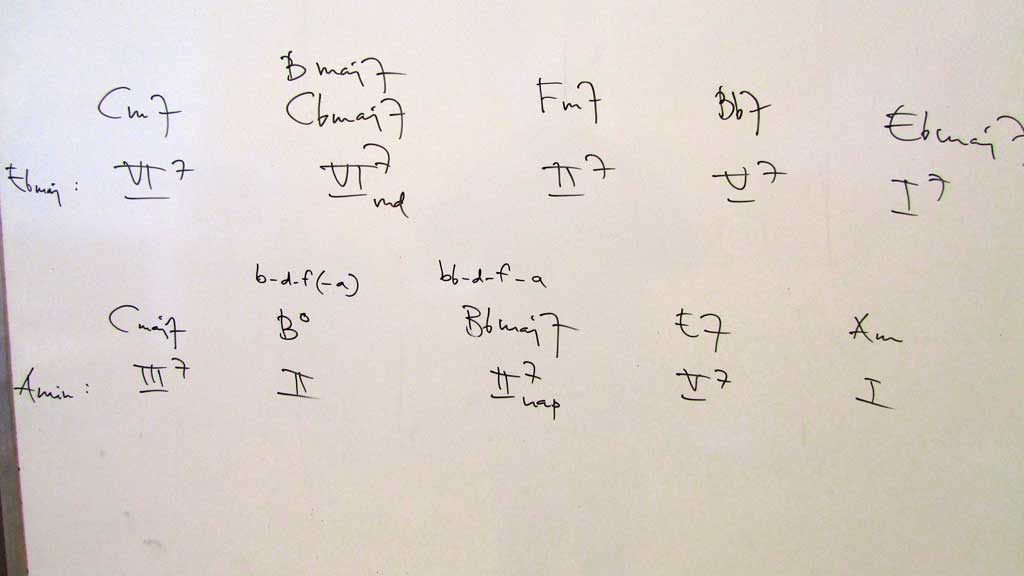 Bmaj7
Cm7 Cbmaj7 Fm7 Bb7 Ebmaj7
Ebmaj: VI7 VI7md II7 V7 I7
b-d-f(-a) bb-d-f-a
Cmaj7 B° Bbmaj7 E7 Am
Amin: III7 II II7nap V7 I